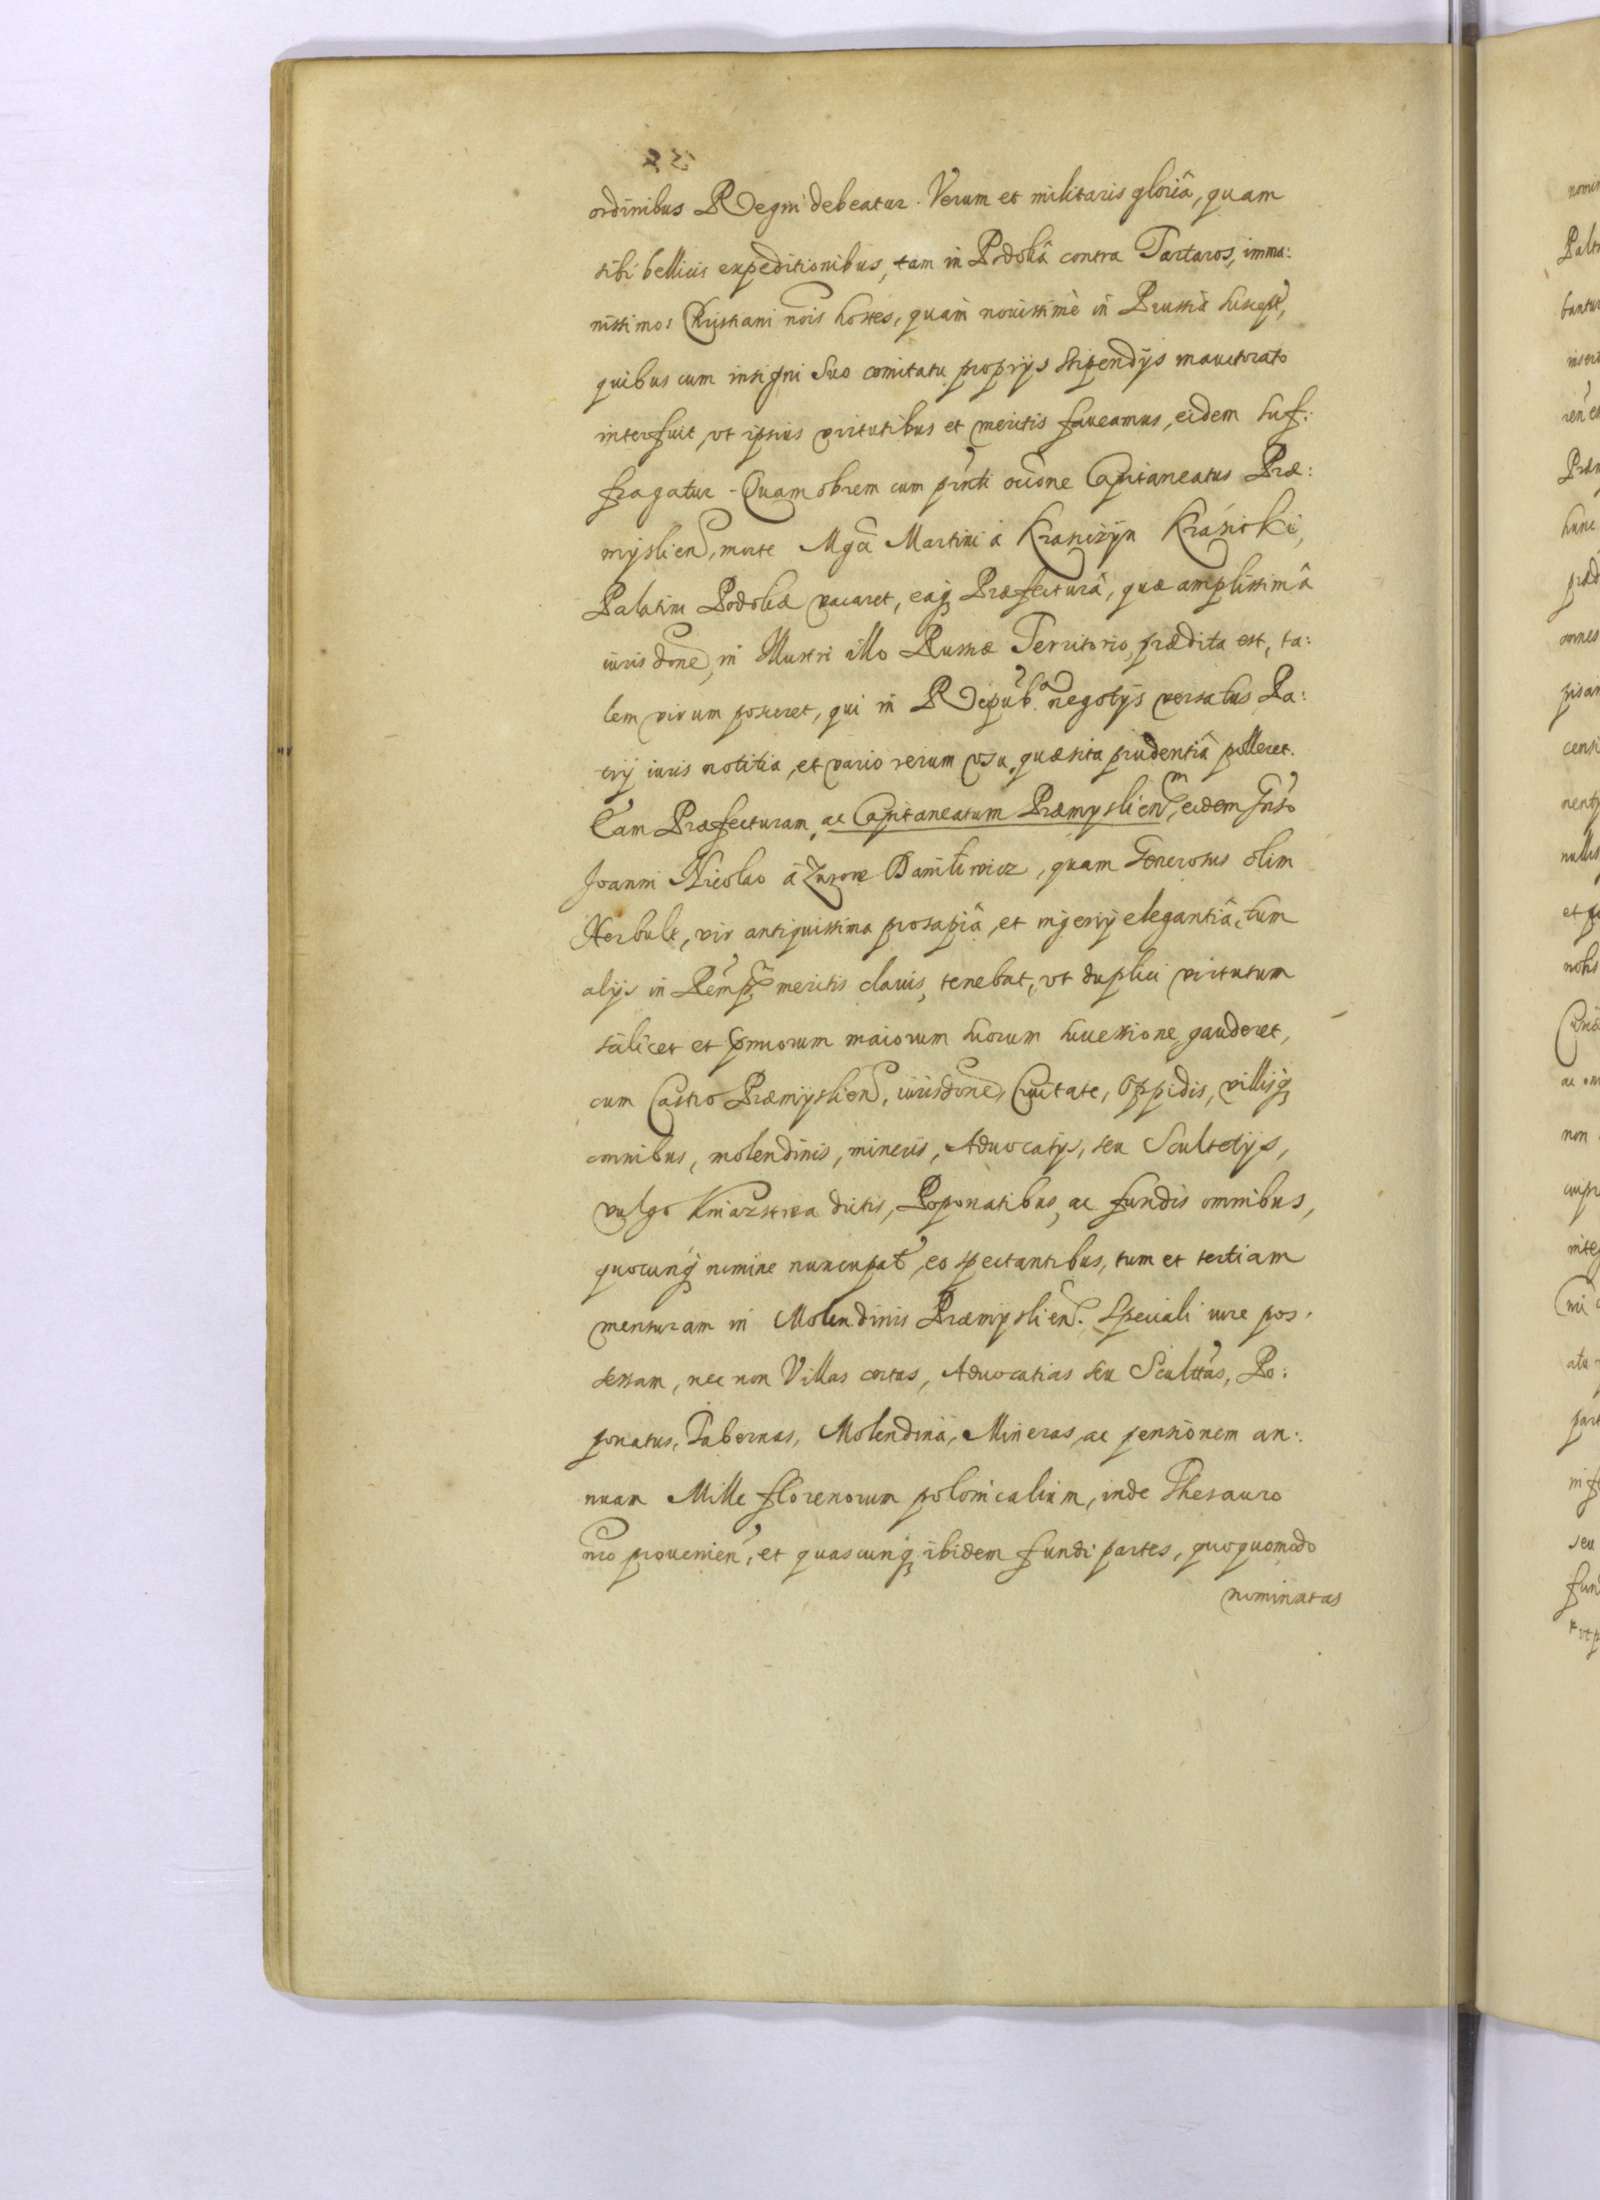 ordinibus Regni debeatur. Verum et militaris gloriâ, quam
sibi bellicis expeditionibus, tam in Podoliâ contra Tartaros, imma:
nissimos Christiani nois hostes, quam nouissimè in Prussiâ suscept,
quibus cum insigni suo comitatu proprijs stipendijs
interfuit, vt ipsius virtutibus et meritis faueamus, eidem suf:
fragatur. Quam obrem cum pnti occone Capitaneatus Præ:
mysliens, morte Mgci Martini à Krasiczyn Krasicki,
Palatini Podoliæ vacaret, eaq Præfecturâ, quæ amplissimâ
iurisdone, in Illustri illo Russiæ Territorio, prædita est, ta:
lem virum posceret, qui in Reipub. negotijs versatus Pa:
trij iuris notitia, et vario rerum vsu, quæsita prudentiâ polleret.
Eam Præfecturam, ac Capitaneatum Præmysliensm, eidem Gnso
Joanni Nicolao à Zurow Daniłłowicz, quam Generosus olim
Herbult, vir antiquissima prosapiâ, et ingenij elegantiâ, tum
alijs in Rempb meritis clarus, tenebat, vt duplici virtutum
scilicet et pmiorum maiorum suorum successione gauderet,
cum Castro Præmysliens, iurisdone, Ciuitate, Oppidis, villisq
omnibus, molendinis, mineris, Aduocatijs, seu Scultetijs,
vulgo Kniazstwa dictis, Poponatibus, ac fundis omnibus,
quocunq nomine nuncupat, eo spectantibus, tum et tertiam
mensuram in Molendinis Præmysliens. speciali iure pos:
sessam, nec non Villas certas, Aduocatias seu Scultas, Po:
ponatus, Tabernas, Molendina, Mineras, ac pensionem an:
nuam Mille florenorum polonicalium, inde Thesauro
nro prouenien, et quascunq ibidem fundi partes, quoquomodo
nominatas